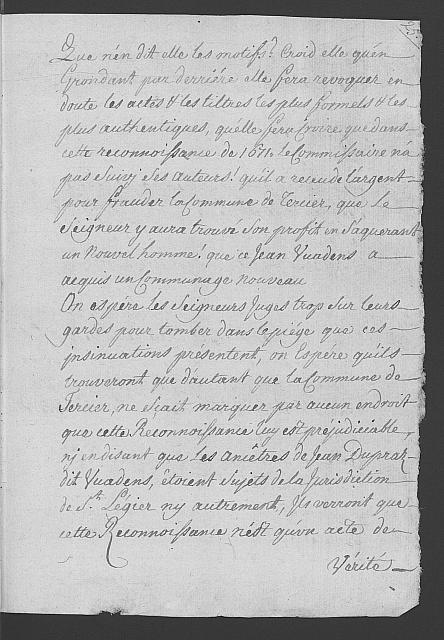 Que n'en dit elle les motifs? Croid elle qu'en
Grondant par derriére elle fera revoquer en
doute les actes & les tiltres les plus formels & les
plus authentiques, qu'elle fera Croire, que dans
cette reconnoissance de 1671. le Commissaire n'a
pas suivy ses auteurs! qu'il a receu de l'argent
pour frauder la Commune de Tercier, que Le
Seigneur y aura trouvé son profit en s'aquerant
un Nouvel homme! que ce Jean Vuadens a
acquis un Communage nouveau
On espére les Seigneurs Juges trop sur leurs
gardes pour tomber dans le piége que ces
insinuations présentent, on Espére qu'ils
trouveront que d'autant que la Commune de
Tercier, ne sçait marquer par aucun endroit
que cette Reconnoissance luy est prejudiciable,
ny en disant que les ancêtres de Jean Dupraz
dit Vuadens, étoient sujets de la Jurisdiction
de St. Légier ny autrement, Ils verront que
cette Reconnoissance n'est qu'un acte de
Vérité